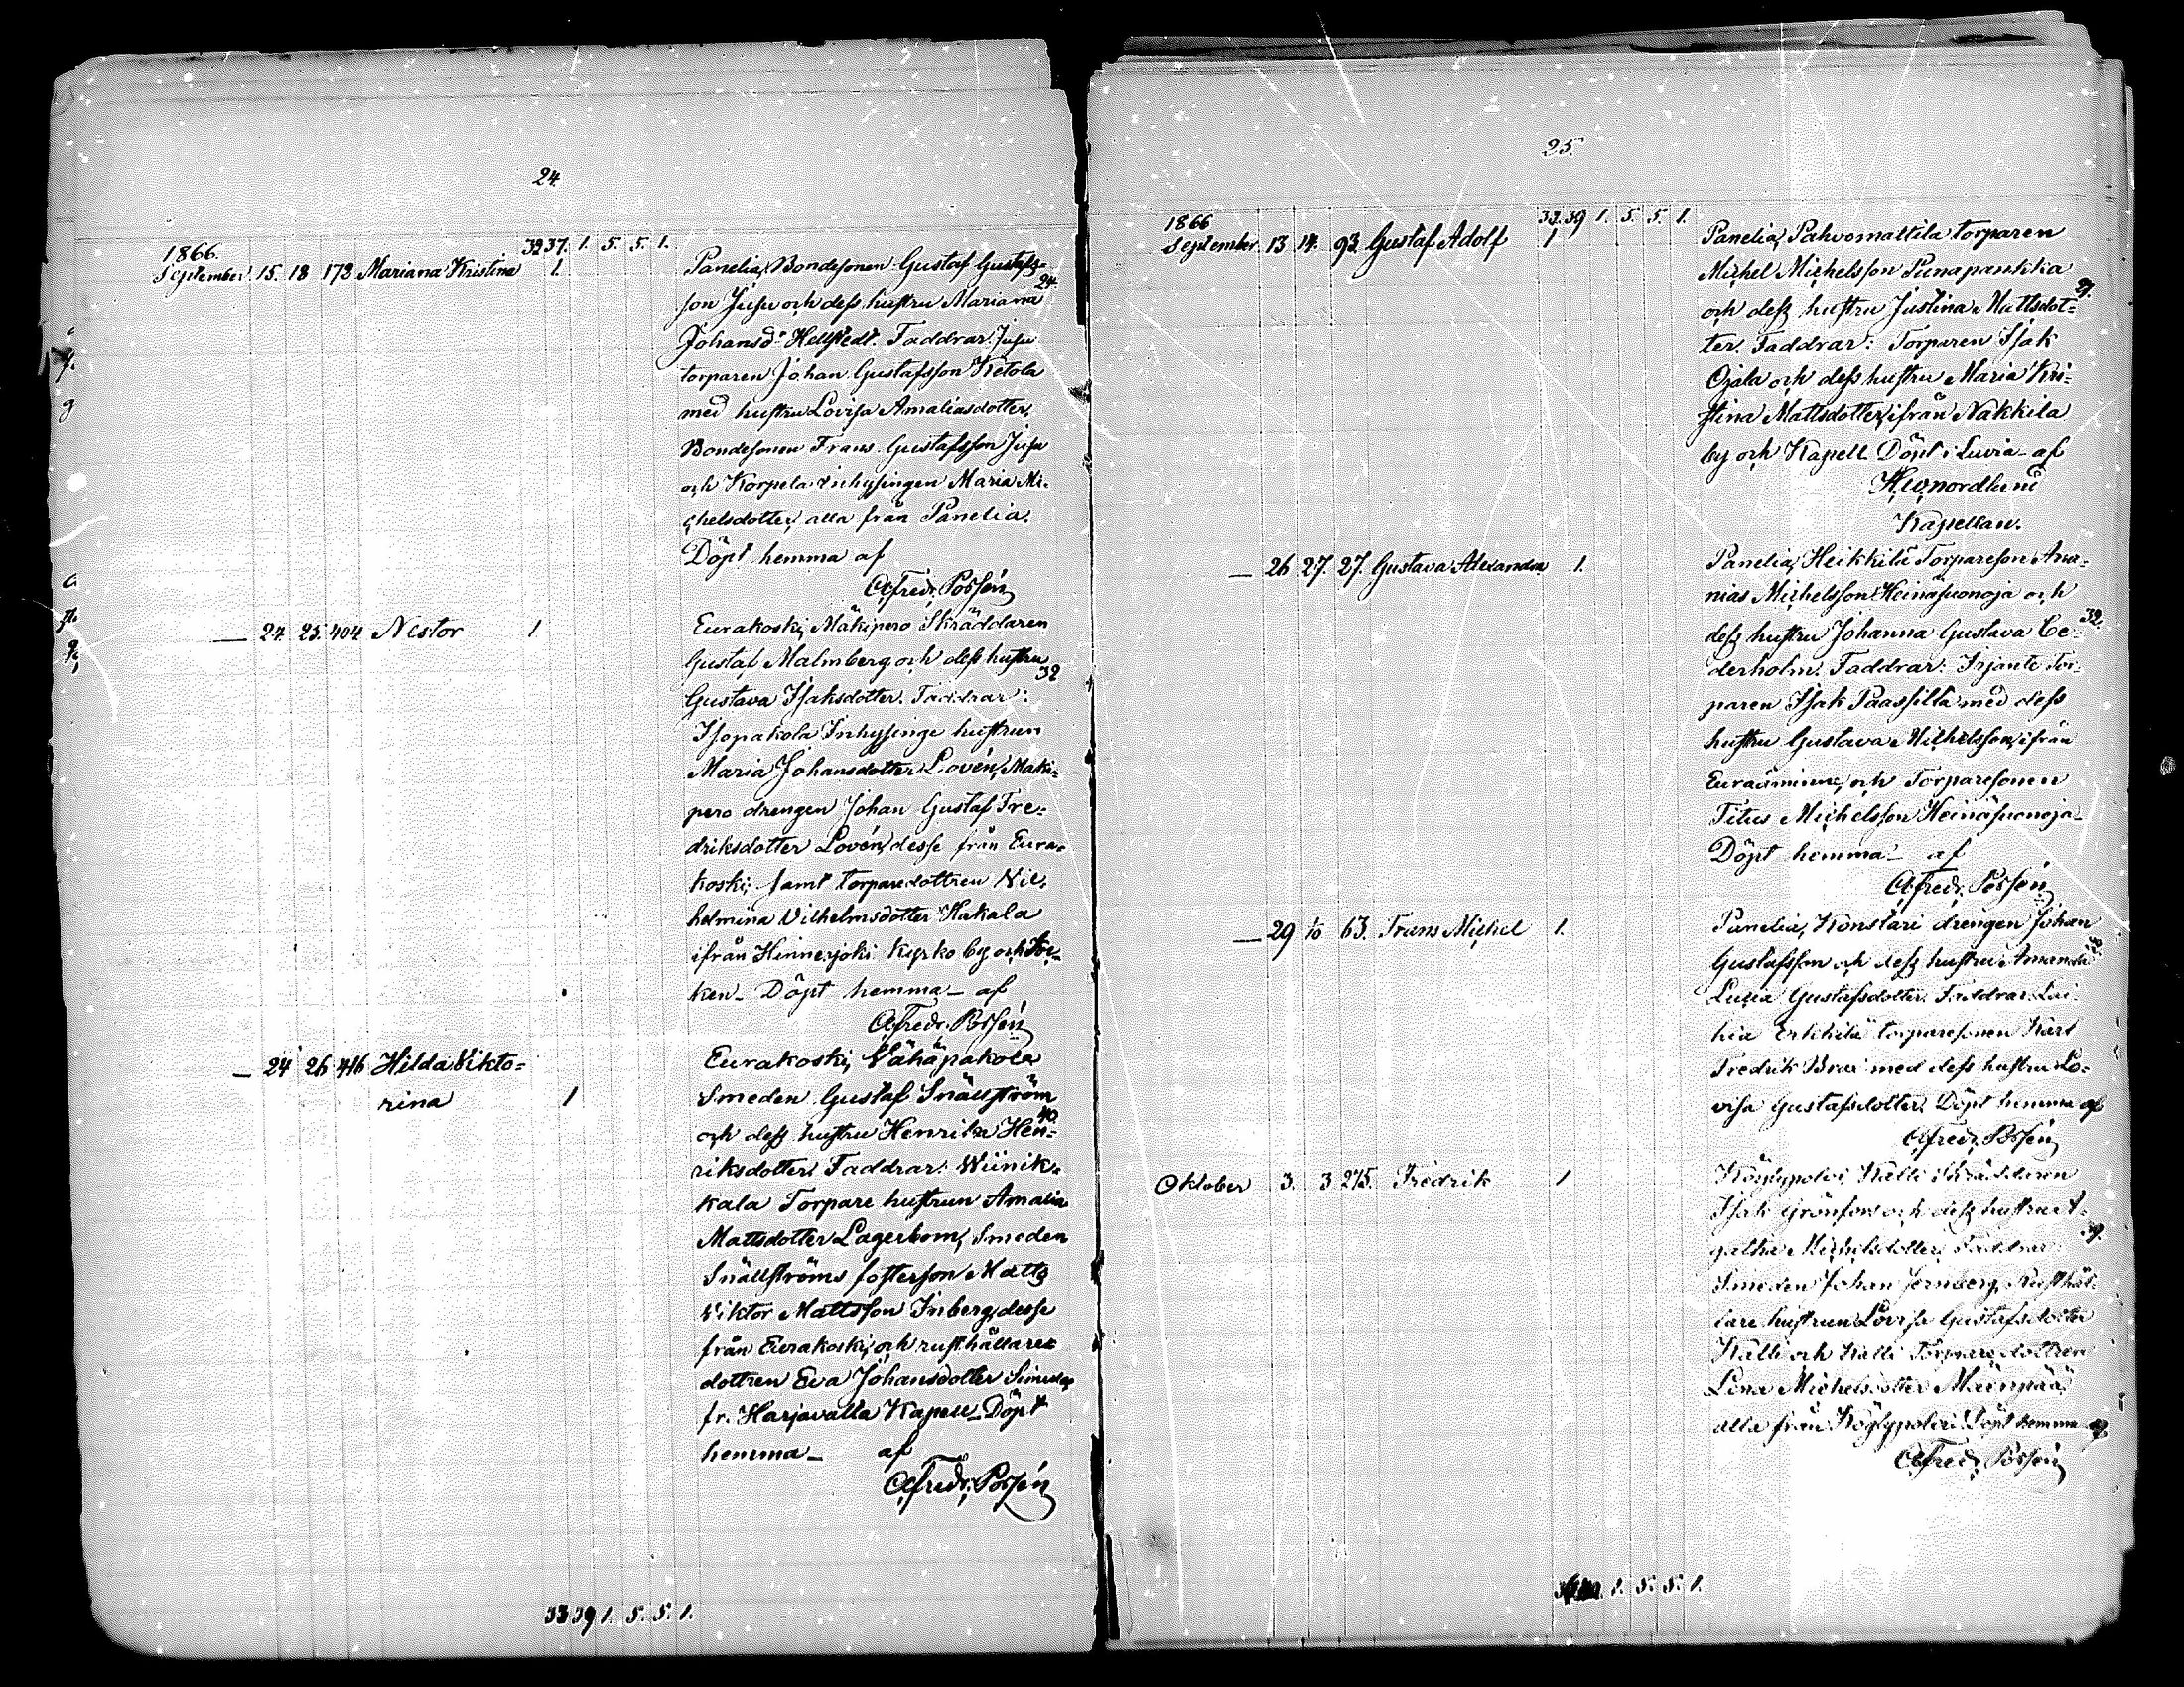 24.
1866.
32 37. 1. 5. 5. 1.
September 15. 18 173 Mariana Kristina 1.
Panelia, Bondesonen Gustaf Gustafs-
son Jusu och dess hustru Mariana 24
Johansdr Hellstedt. Faddrar: Jusu
torparen Johan Gustafsson Ketola
med hustru Lovisa Amaliasdotter,
Bondesonen Frans Gustafsson Jusu
och Korpela inhysingen Maria Mi-
chelsdotter, alla från Panelia.
Döpt hemma af
Alfredr. Possén
— 24. 25. 404 Nestor 1
Eurakoski, Mäkipero Skräddaren
Gustaf Malmberg och dess hustru 32
Gustava Isaksdotter. Faddrar:
Isopakola Inhysinge hustrun
Maria Johansdotter Lovén, Mäki-
pero drengen Johan Gustaf Fre-
driksdotter Lovén, desse från Eura-
koski; samt torparedottren Vil-
helmina Vilhelmsdotter Hakala
ifrån Hinnerjoki kyrko by och
ken – Döpt hemma – af
Alfredr. Possén
— 24 26 416 Hilda Vikto-
rina 1
Eurakoski, Vähäpakola
Smeden Gustaf Snällström
och dess hustru Henrika Hen- 40.
riksdotter. Faddrar: Wiinik-
kala Torpare hustrun Amalia
Mattsdotter Lagerbom, Smeden
Snällströms fosterson Matts
Viktor Mattsson Inberg, desse
från Eurakoski, och rusthållare-
dottren Eva Johansdotter
fr. Harjavalta Kapell – Döpt
hemma – af
Alfredr. Possén
33 39 1. 5. 5. 1.
25.
1866
33. 39 1. 5. 5. 1.
September 13 14. 93. Gustaf Adolf 1
Panelia, Pahvomattila torparen
Michel Michelsson Punapankka
och dess hustru Justina Mattsdot-
ter. Faddrar: Torparen Isak
Ojala och dess hustru Maria Kri-
stina Mattsdotter, ifrån Nakkila
by och Kapell. Döpt i Luvia – af
Nordlund
Kapellan.
— 26 27. 27. Gustava Alexandra 1.
Panelia, Heikkilä Torpareson Ana-
nias Michelsson Heinäsuonoja och
dess hustru Johanna Gustava Ce- 32.
derholm. Faddrar: Irjante Tor-
paren Isak Paassilta med dess
hustru Gustava Michelsson, ifrån
Euraåminne, och Torparesonen
Titus Michelsson Heinäsuonoja –
Döpt hemma – af
Alfredr. Possén
— 29 1/10 63. Frans Michel 1.
Panelia, Konstari drengen Johan
Gustafsson och dess hustru Amanda
Lucia Gustafsdotter. Faddrar: Lai-
hia Erkkilä torparesonen Karl
Fredrik Brax med dess hustru Lo-
visa Gustafsdotter. Döpt hemma af
Alfredr. Possén
Oktober 3. 3 275. Fredrik 1
Köylypolvi, Källi Skräddaren
Isak Grönfors och dess hustru A-
gatha Michelsdotter. Faddrar:
Smeden Johan Jernberg, Rusthål-
lare hustrun Lovisa Gustafsdotter
Källi och Källi Torparedottren
Lena Michelsdotter Mäenpää,
alla från Köylypolvi. Döpt hemma af
Alfredr. Possén
1. 5. 5. 1.